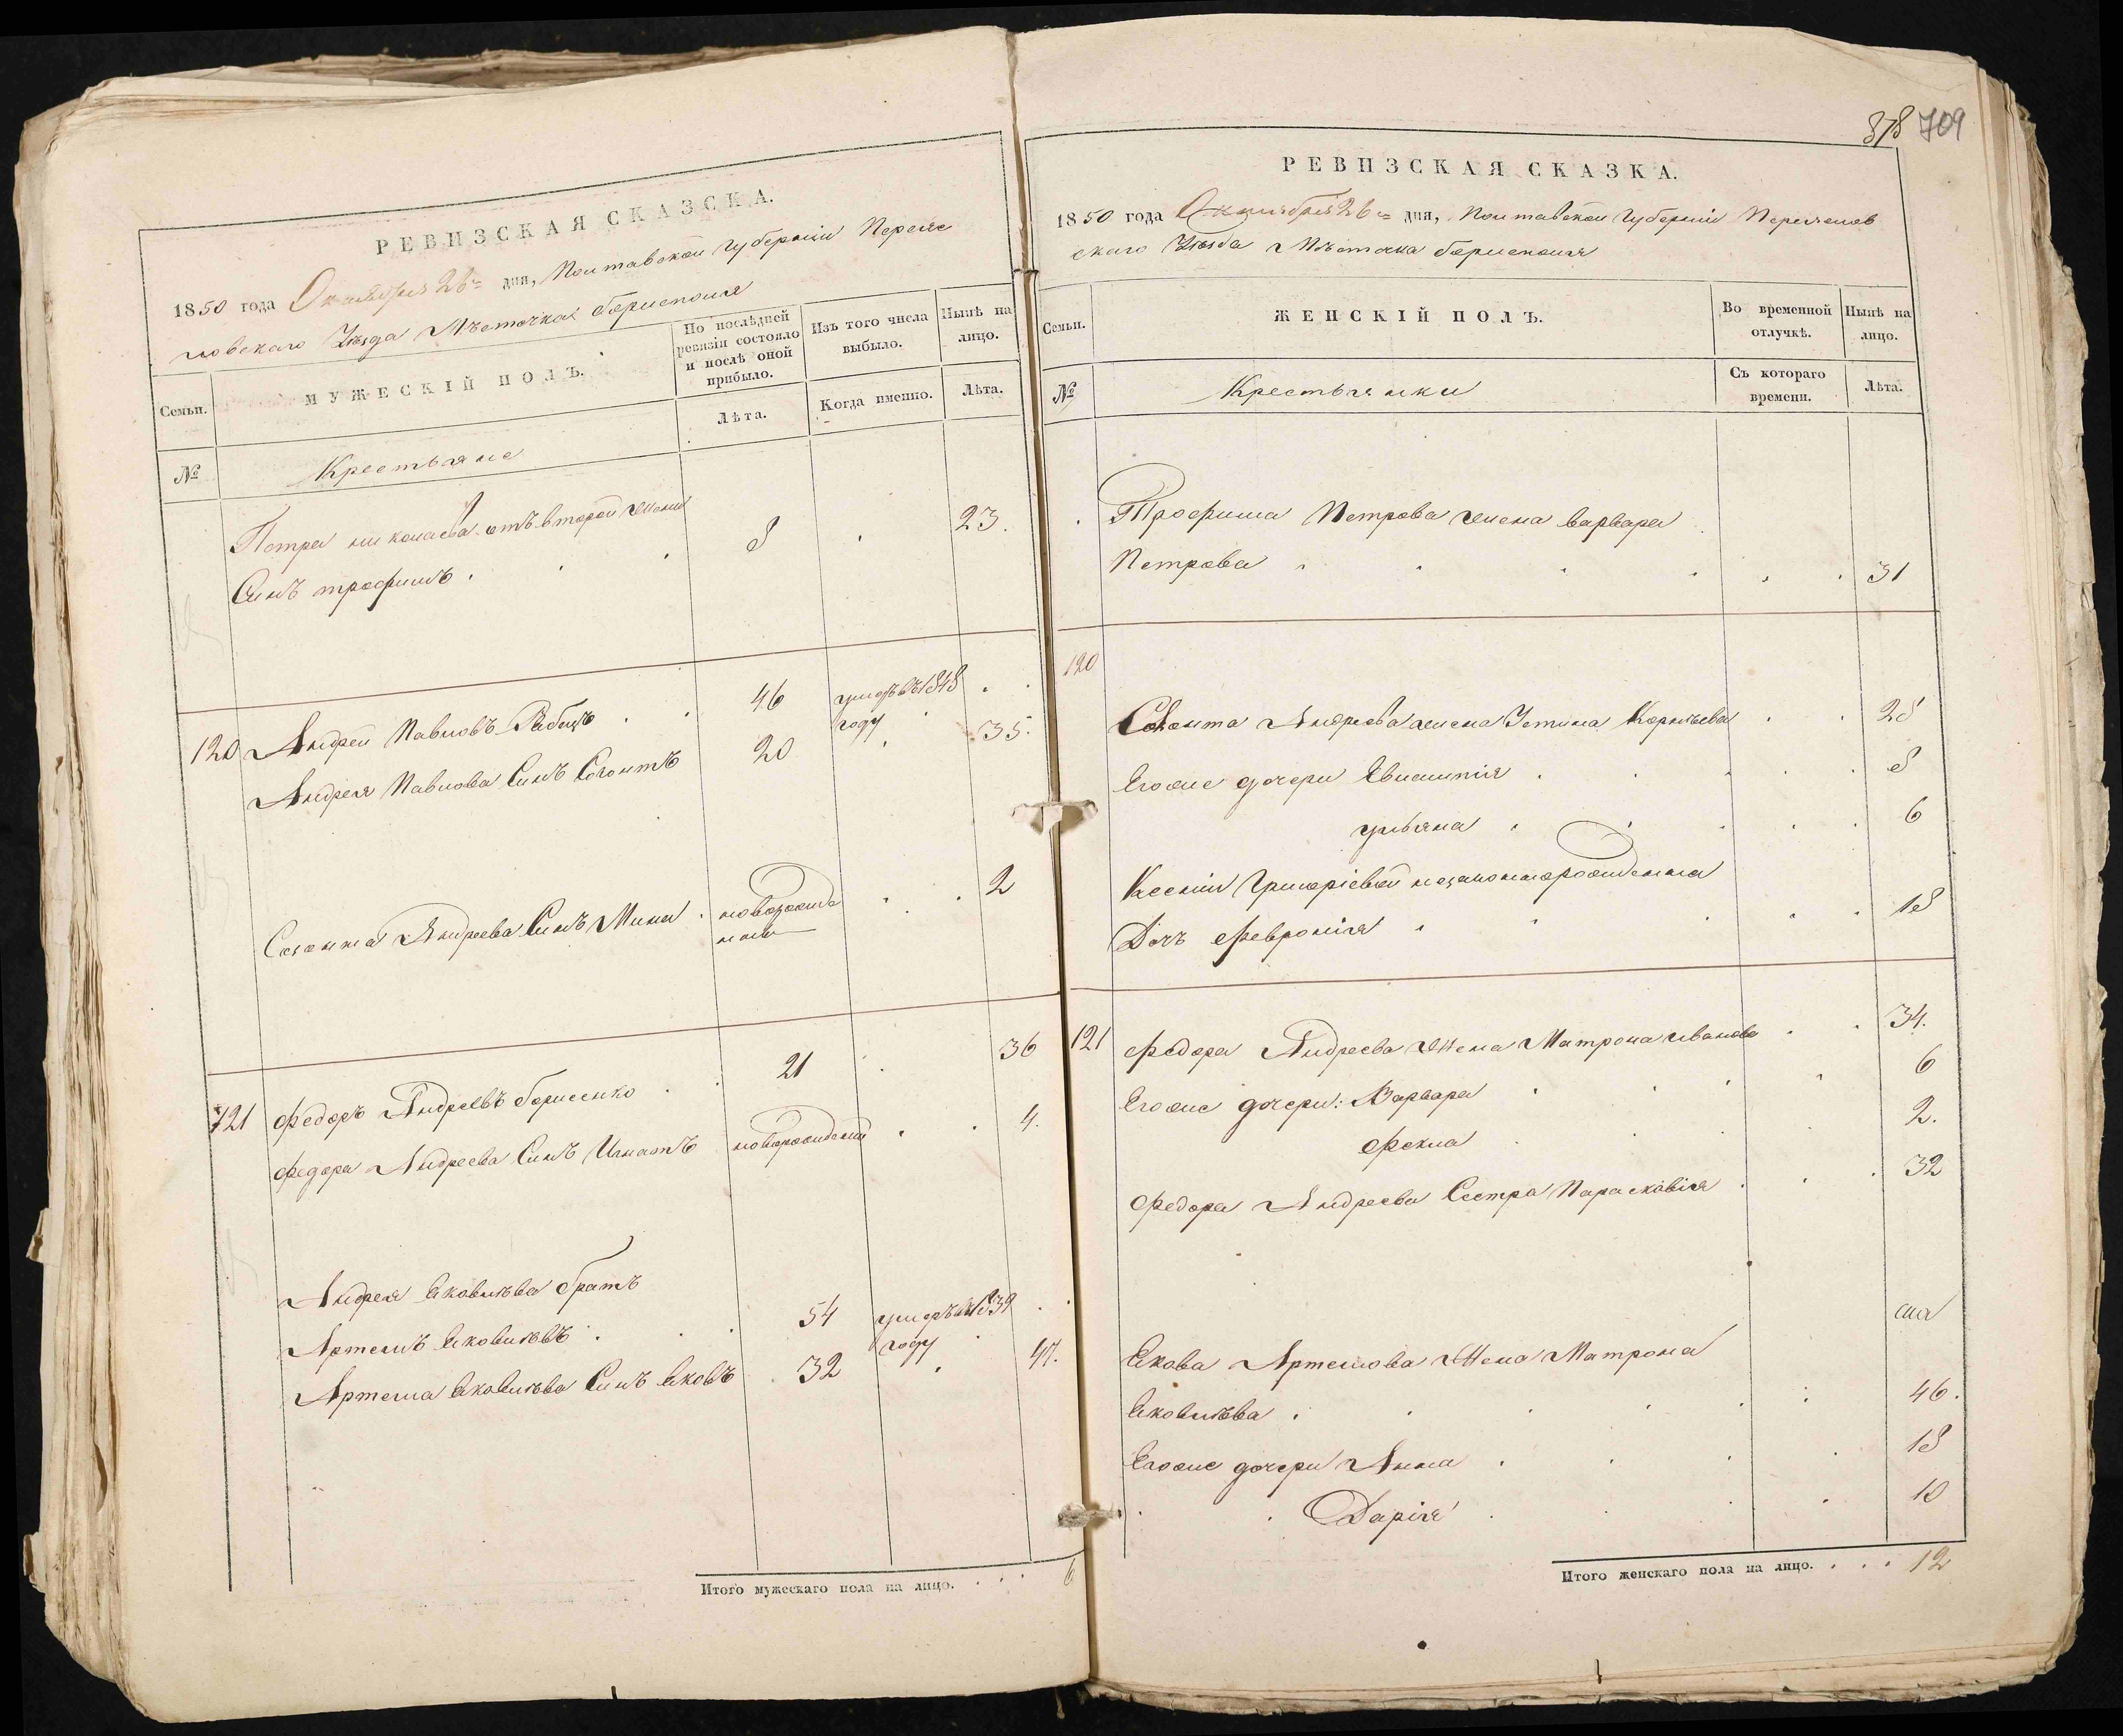 РЕВИЗСКАЯ СКАЗКА.
1850 года Октября 26 дня, Полтавской Губернии Переяс
ловскаго Уезда Мѣстечка Борисполя
Семьи.
МУЖЕСКІЙ ПОЛЪ.
По послѣдней ревизіи состояло и послѣ оной прибыло.
Изъ того числа выбыло.
Нынѣ на лицо.
№
Крестьяне
Лѣта.
Когда именно.
Лѣта.
Петра Николаева отъ второй жены
Синъ трофимъ . 8 23.
120 Андрей Павловъ 46 умеръ въ 1848 году
Андрея Павлова Синъ Созонтъ 20 35.
Созонта Андреева Синъ Мина новорожде 2
121 Федоръ Андреевъ Борисенко 21 36
Федора Андреева Синъ Игнатъ новорожденъ 4.
Андрея Яковлѣва братъ
Артемъ Яковлѣвъ 54 умеръ 1839 году
Артема Яковлѣва Синъ Яковъ 32 47.
Итого мужескаго пола на лицо. . . . 6
378 709
РЕВИЗСКАЯ СКАЗКА.
1850 года Октября 26 дня, Полтавской Губерніи Переяслов
скаго Уезда Мѣстечка Борисполя
Семьи.
ЖЕНСКІЙ ПОЛЪ.
Во временной отлучкѣ.
Нынѣ на лицо.
№
Крестьянки
Съ котораго времени.
Лѣта.
Трофима Петрова жена варвара
Петрова 31
120
Созонта Андреева жена Устина Корнѣева 28
Егоже дочери 8
ульяна 6
Ксеніи Григоріевой незаконнорожденна
Дочъ Февронія 18
121 Федора Андреева Жена Матрона иванова 34.
Егоже дочери: Варвара 6
Фекла 2.
Федора Андреева Сестра Параскавія 32
Якова Артемова Жена Матрона
Яковлѣва 46.
Егоже дочери Анна 18
Дарія 10
Итого женскаго пола на лицо. . . . 12